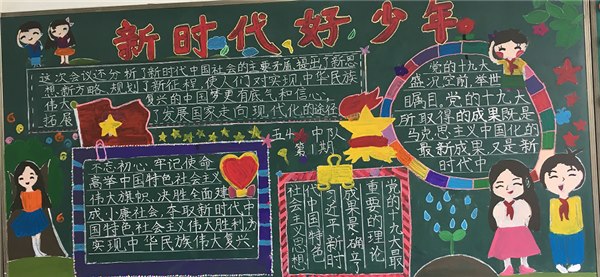 新时代好少年
这次会议还分析了新时代中国社会的主要矛盾,提出了新思
想,新方略,规划了新征程,使人们对实现中华民族
伟大 复兴的中国梦更有底气和信心。
拓展 了发展国家走向现代化的途径
五4中队
第1期
不忘初心,牢记使命
高举中国特色社会主义
伟大旗帜,决胜全面建
成小康社会,夺取新时代中
国特色社会主义伟大胜利为
实现中华民族伟大复兴
党的十九大最
重要的理论
成果是确立了
习近平新时
代中国特色
社会主义思想
党的十九大
盛况空前,举世
目属目。党的十九大
所取得的成果既是
马克思主义中国化的
最新成果,又是新
时代中